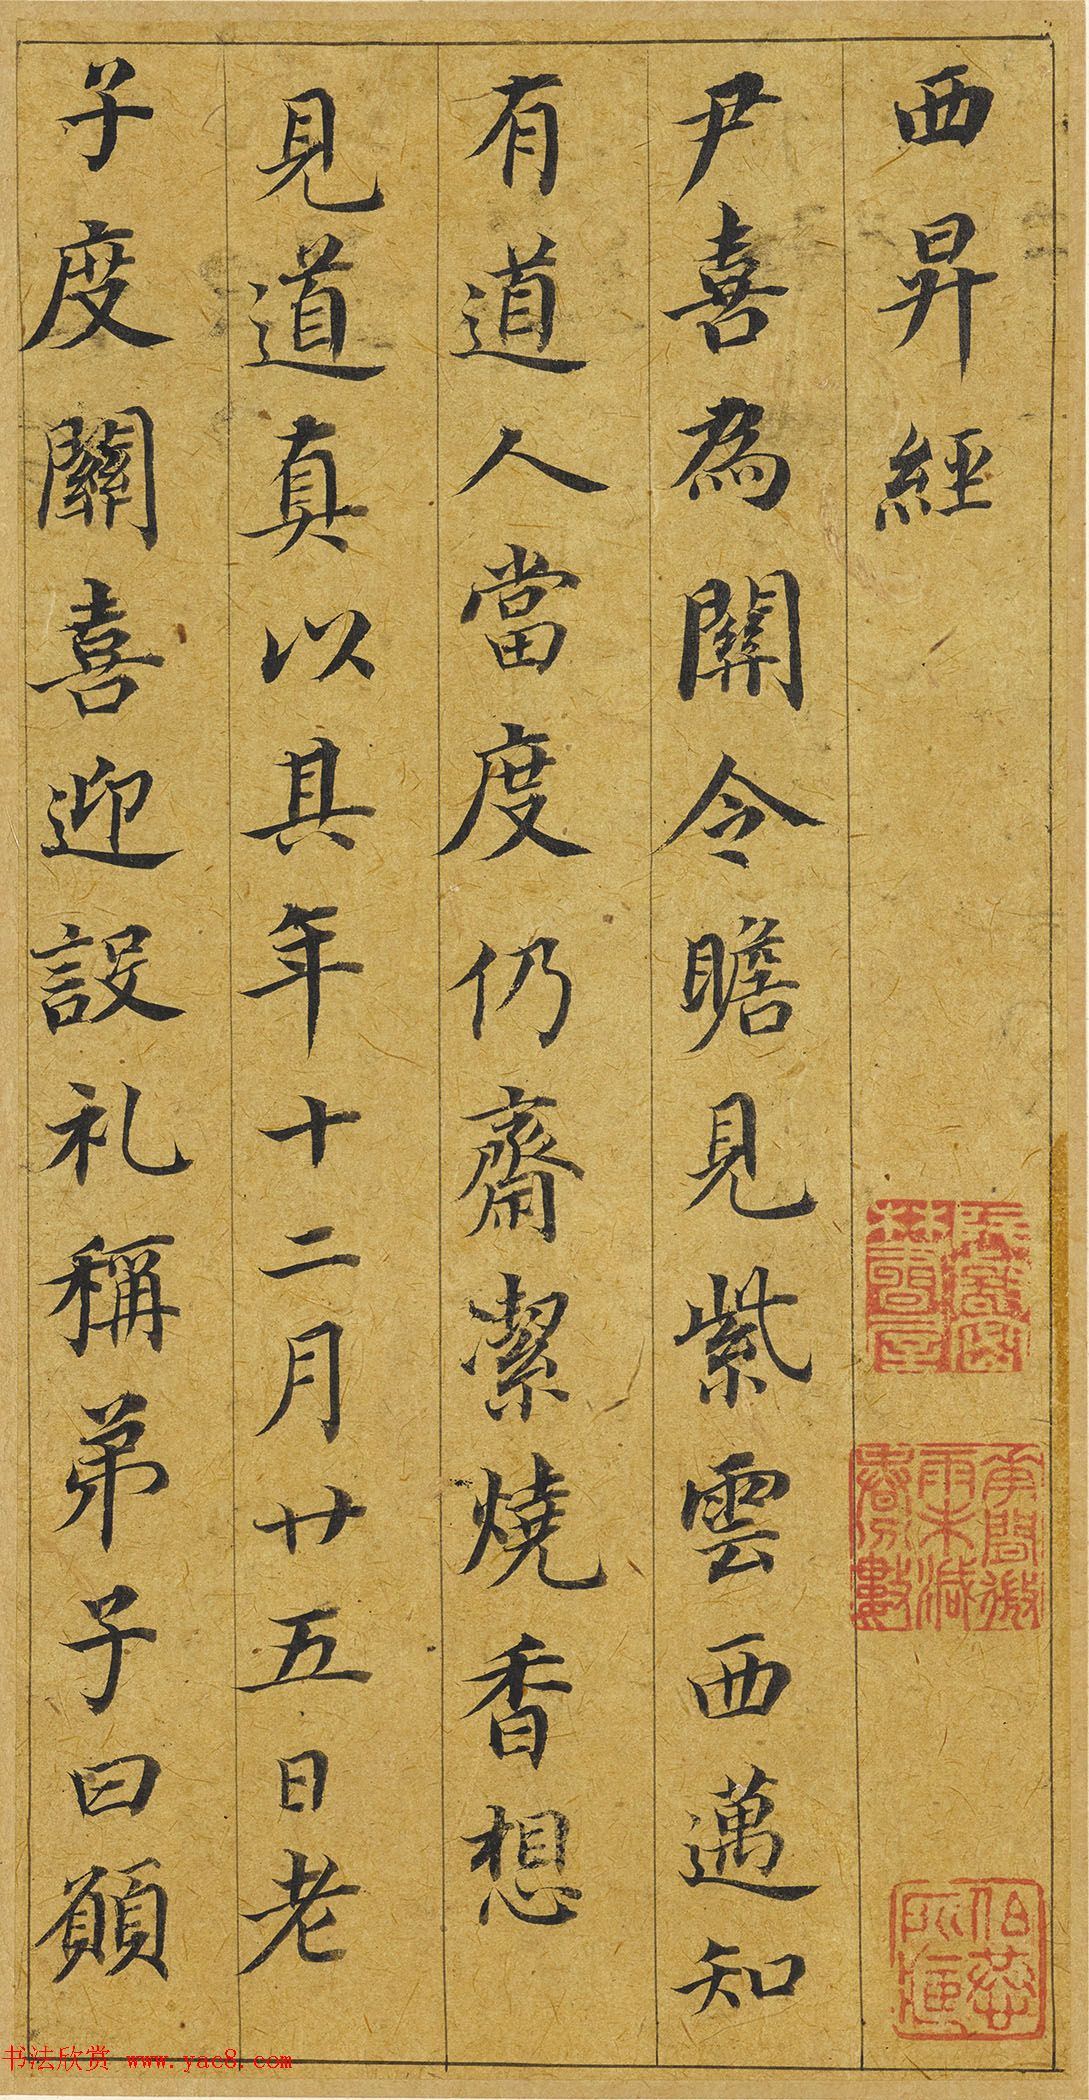 西昇經
尹喜為關令瞻見紫雲西邁知
有道人當度仍齋潔燒香想
見道真以其年十二月廿五日老
子度關喜迎設礼稱弟子曰願
书法欣赏 www.yac8.com